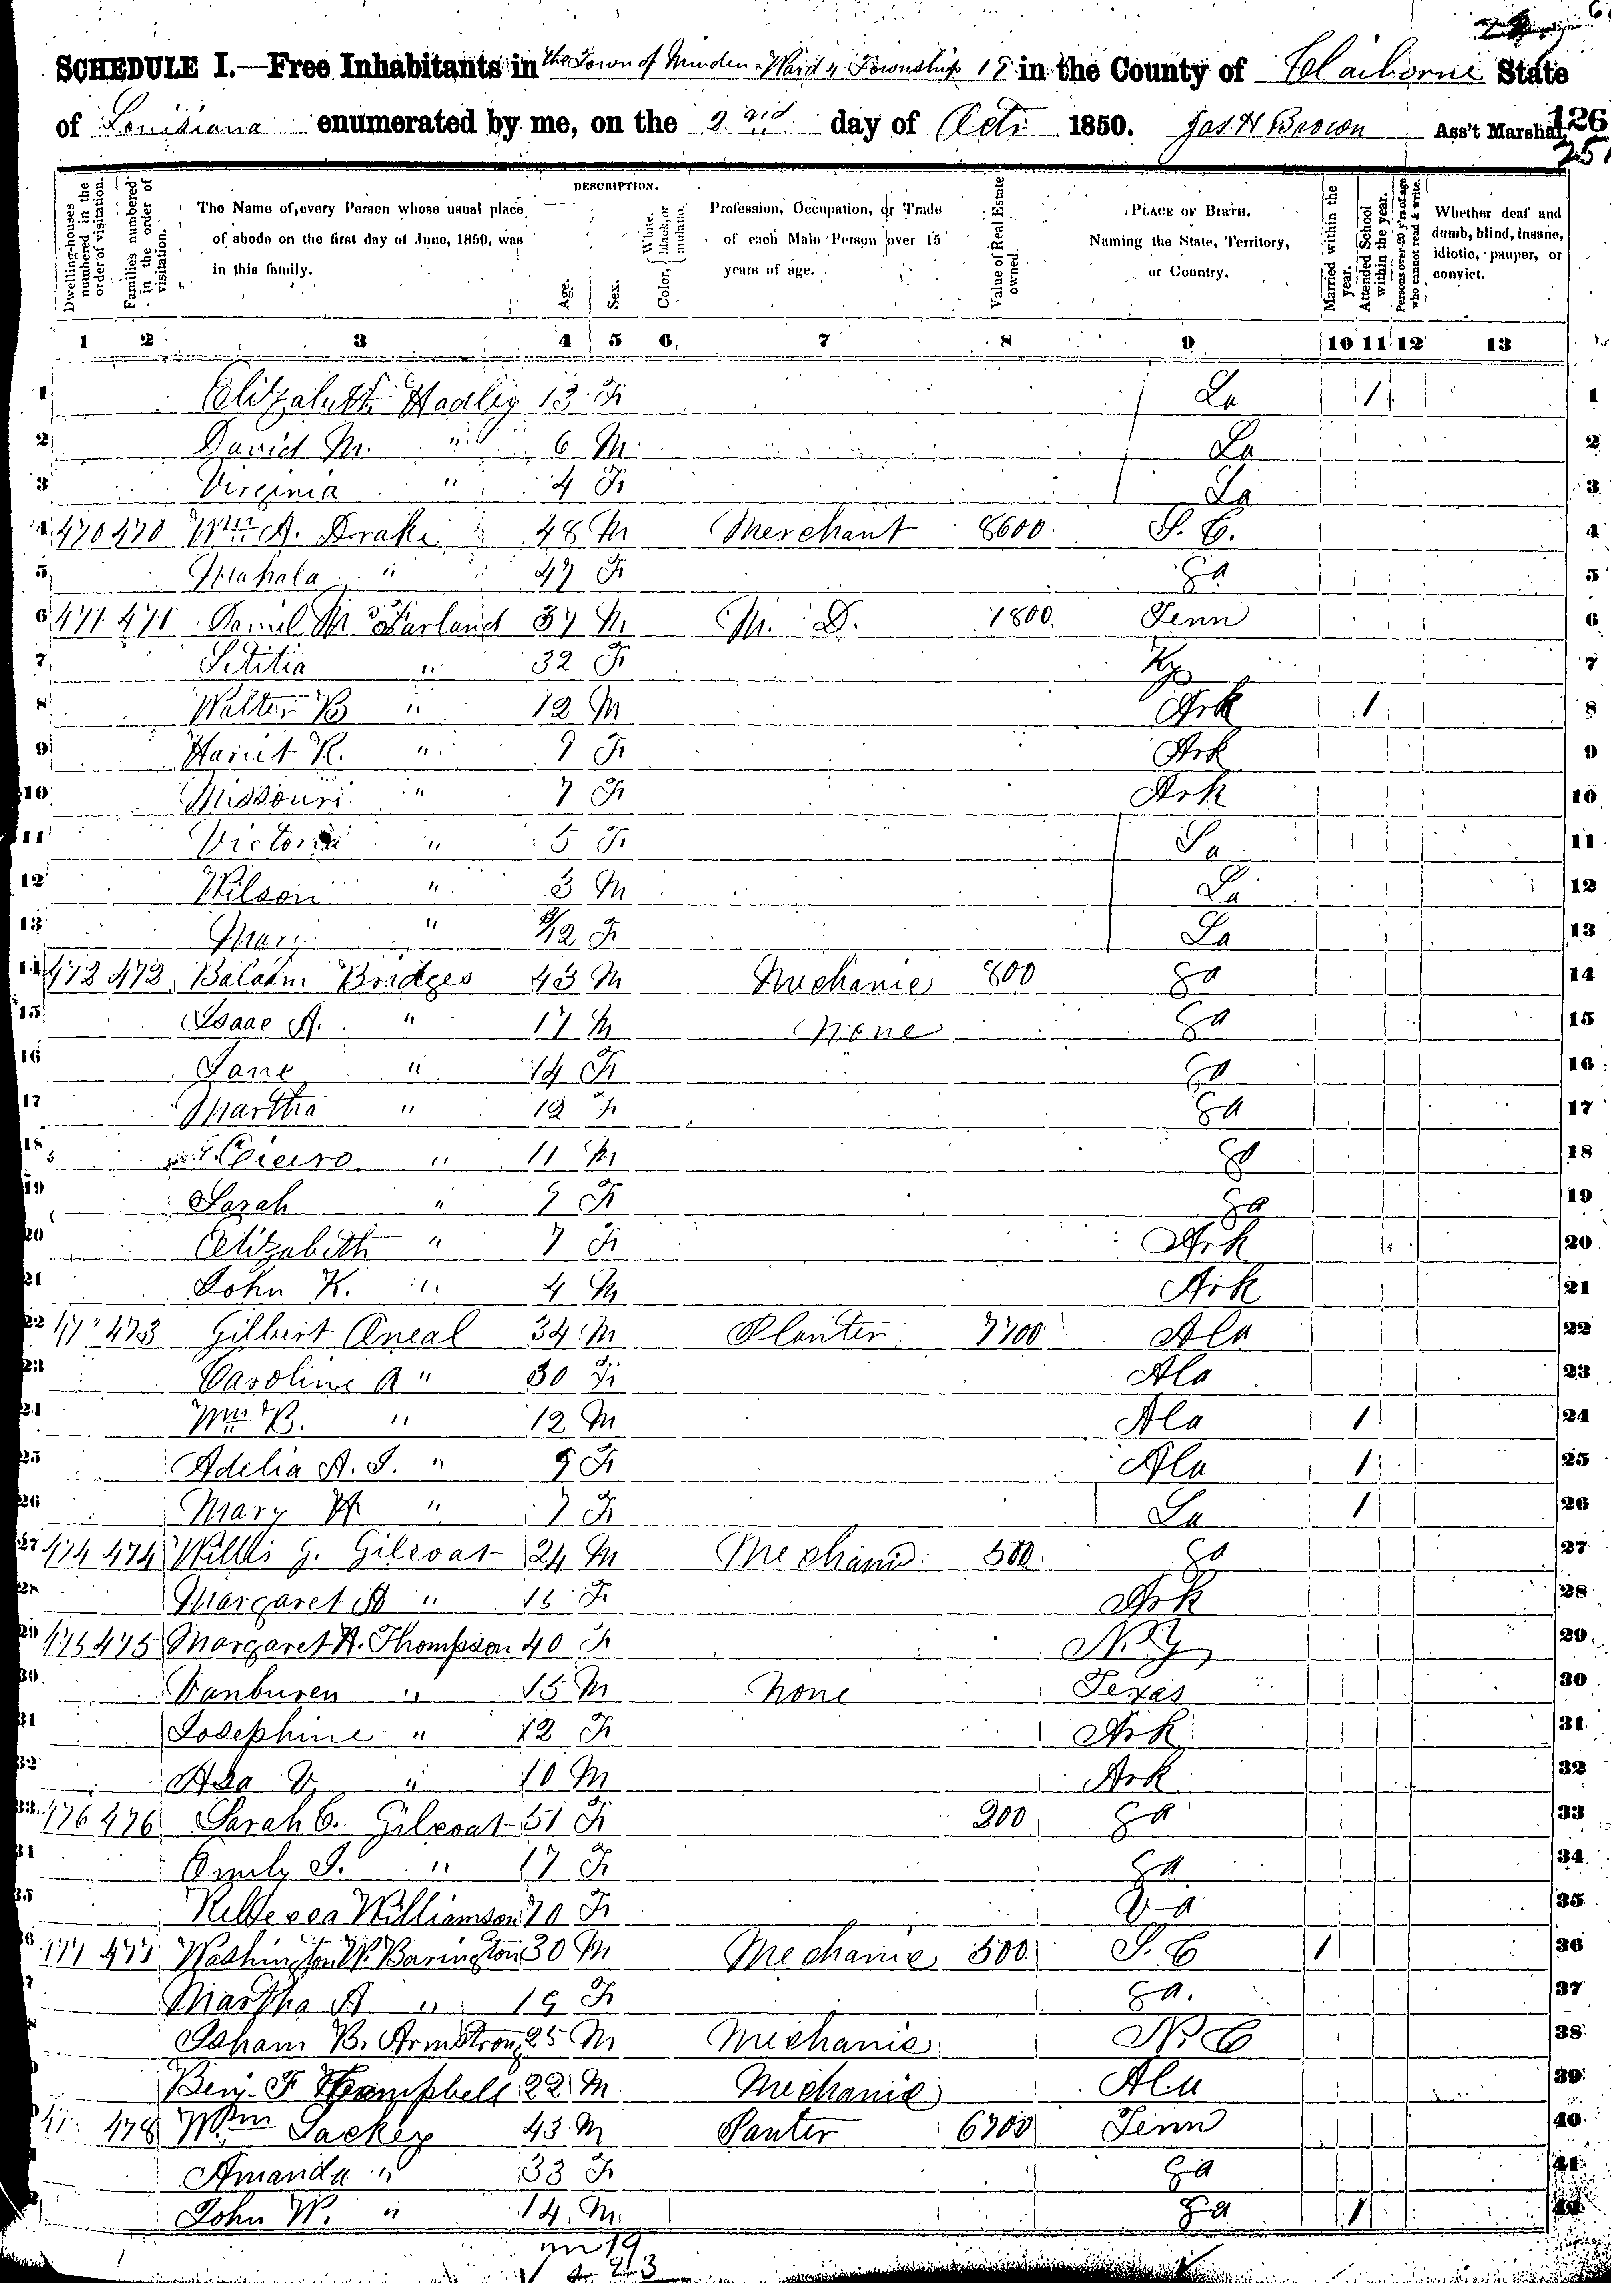 SCHEDULE I.—Free Inhabitants in the Town of Minden Ward 4 Township 19 in the County of Claiborne State
of Louisiana enumerated by me, on the 22nd day of Oct. 1850. Jas H Brown Ass't Marshal.
126
DESCRIPTION.
Dwelling-houses numbered in the order of visitation.
Families numbered in the order of visitation.
The Name of every Person whose usual place of abode on the first day of June, 1850, was in this family.
Age.
Sex.
Color, White, black, or mulatto.
Profession, Occupation, or Trade of each Male Person over 15 years of age.
Value of Real Estate owned.
PLACE OF BIRTH. Naming the State, Territory, or Country.
Married within the year.
Attended School within the year.
Persons over 20 y'rs of age who cannot read & write.
Whether deaf and dumb, blind, insane, idiotic, pauper, or convict.
1 2 3 4 5 6 7 8 9 10 11 12 13
1 Elizabeth Hadley 13 F La 1 1
2 David M. " 6 M La 2
3 Virginia " 4 F La 3
4 470 470 Wm A. Drake 48 M Merchant 8600 S. C. 4
5 Mahala " 47 F Ga 5
6 471 471 Daniel McFarland 37 M M. D. 1800 Tenn 6
7 Letitia " 32 F Ky 7
8 Walter B " 12 M Ark 1 8
9 Hariet R. " 9 F Ark 9
10 Missouri " 7 F Ark 10
11 Victoria " 5 F La 11
12 Wilson " 3 M La 12
13 Mary " /12 F La 13
14 472 472 Balaam Bridges 43 M Mechanic 800 Ga 14
15 Isaac A. " 17 M None Ga 15
16 Jane " 14 F Ga 16
17 Martha " 12 F Ga 17
18 Cicero " 11 M Ga 18
19 Sarah " 9 F Ga 19
20 Elizabeth " 7 F Ark 20
21 John K. " 4 M Ark 21
22 473 Gilbert Oneal 34 M Planter 7700 Ala 22
23 Caroline A " 30 F Ala 23
24 Wm B. " 12 M Ala 1 24
25 Adelia A. J. " 9 F Ala 1 25
26 Mary H " 7 F La 1 26
27 474 474 Willis G. Gilcoat 24 M Mechanic 500 Ga 27
28 Margaret A " 16 F Ark 28
29 475 475 Margaret A. Thompson 40 F N. Y 29
30 Vanburen " 15 M None Texas 30
31 Josephine " 12 F Ark 31
32 Asa V " 10 M Ark 32
33 476 476 Sarah C. Gilcoat 51 F 200 Ga 33
34 Emily J. " 17 F Ga 34
35 Rebecca Williamson 70 F Va 35
36 477 477 Washington W. Barington 30 M Mechanic 500 S. C 1 36
Martha A " 19 F Ga. 37
Isham B. Armstrong 25 M Mechanic N. C 38
Benj. F Campbell 22 M Mechanic Ala 39
478 Wm Lackey 43 M Panter 6700 Tenn 40
Amanda " 33 F Ga 41
John W. " 14 M Ga 1 42
m 19
23